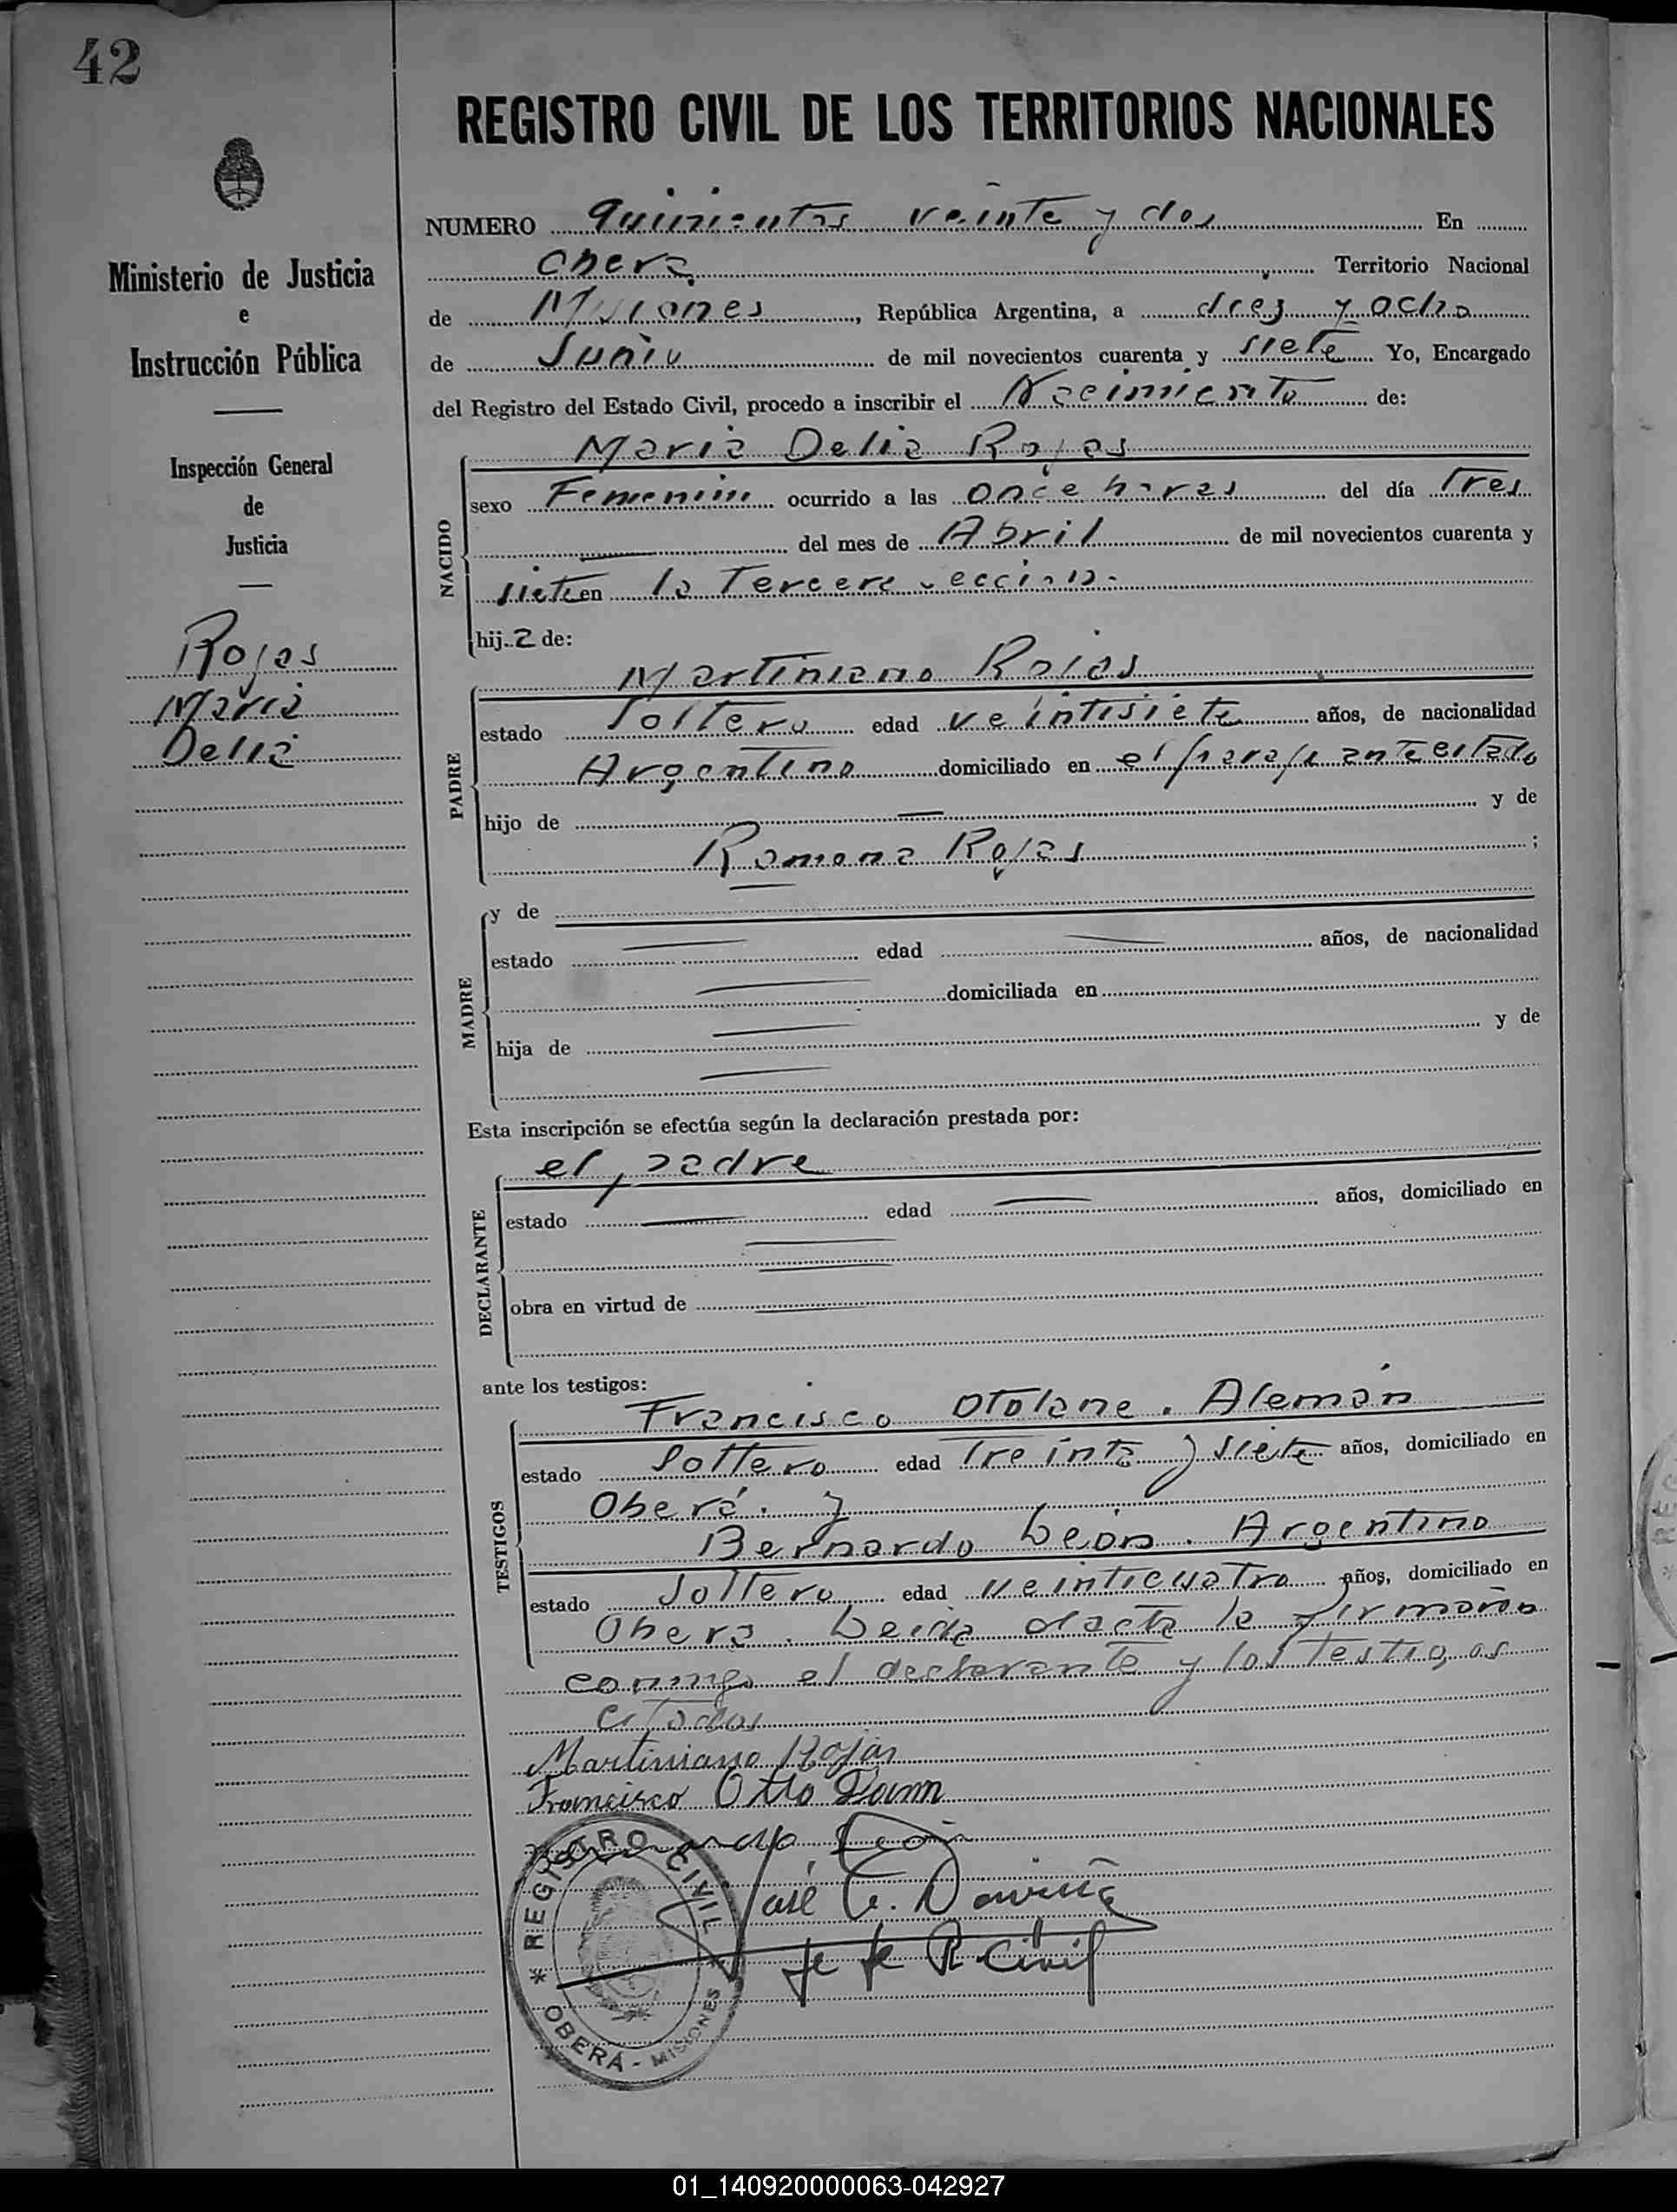 42
REGISTRO CIVIL DE LOS TERRITORIOS NACIONALES
Ministerio de Justicia
e
Instrucción Pública
Inspección General
de
Justicia
Rojas
Maria
Delia
NUMERO quinientos veinte y dos En
Oberá Territorio Nacional
de Misiones, República Argentina, a diez y ocho
de Junio de mil novecientos cuarenta y siete Yo, Encargado
del Registro del Estado Civil, procedo a inscribir el Nacimiento de:
NACIDO
Maria Delia Rojas
sexo Femenino ocurrido a las once horas del día Tres
del mes de Abril de mil novecientos cuarenta y
siete en la Tercera seccion.
hij a de:
PADRE
Martiniano Rojas
estado Soltero edad veintisiete años, de nacionalidad
Argentino domiciliado en el paraje ante citado
hijo de y de
Romona Rojas ;
MADRE
y de
estado edad años, de nacionalidad
domiciliada en
hija de y de
Esta inscripción se efectúa según la declaración prestada por:
DECLARANTE
el padre
estado edad años, domiciliado en
obra en virtud de
ante los testigos:
TESTIGOS
Francisco Otolane. Alemán
estado Soltero edad Treinta y siete años, domiciliado en
Oberá. y
Bernardo León. Argentino
estado Soltero edad veinticuatro años, domiciliado en
Obera. Leida el acta la firmaron
conmigo el declarante y los Testigos
citados
Martiniano Rojas
Francisco Otto Dann
León
José C.
Jefe R. Civil
* REGISTRO CIVIL
OBERÁ - MISIONES
01_140920000063-042927